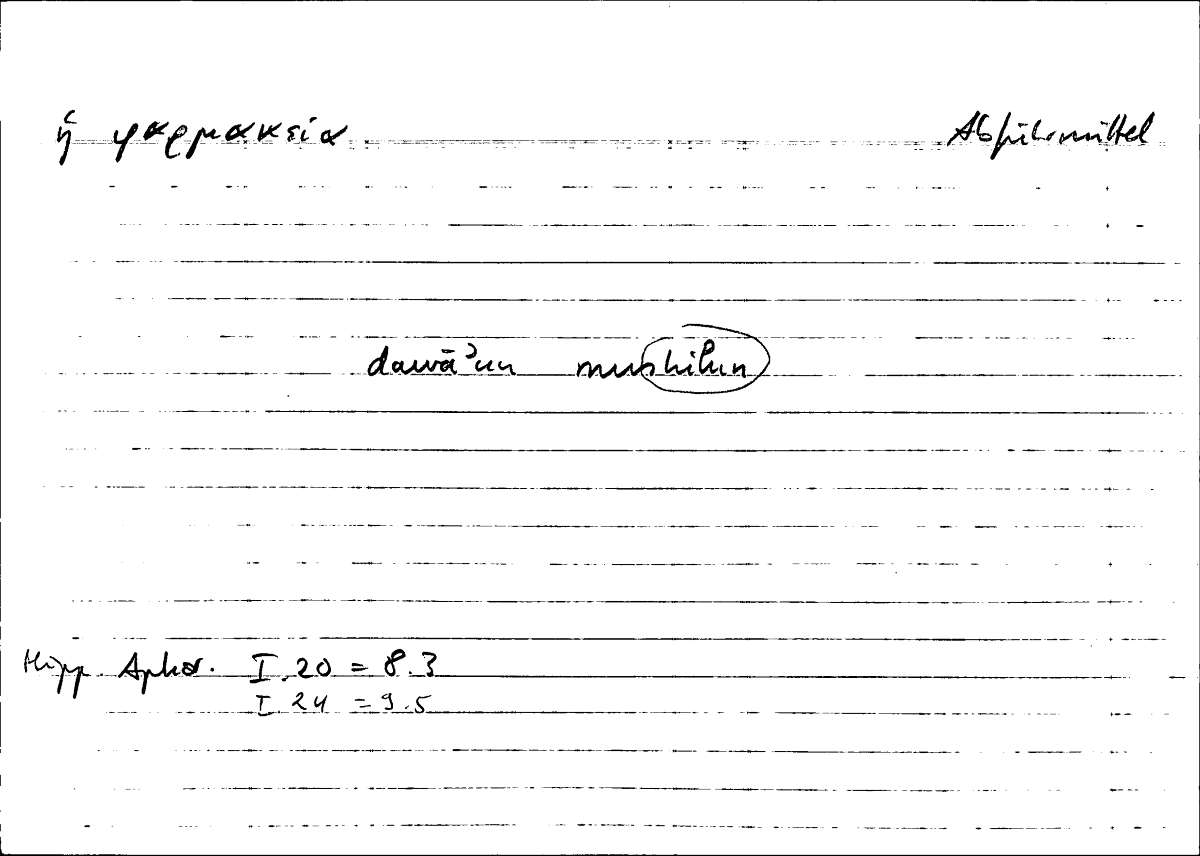 ἡ φαρμακεία Abführmittel
dawāʾun mushilun
Hipp. Aphor. I.20 = 8.3
I.24 = 9.5